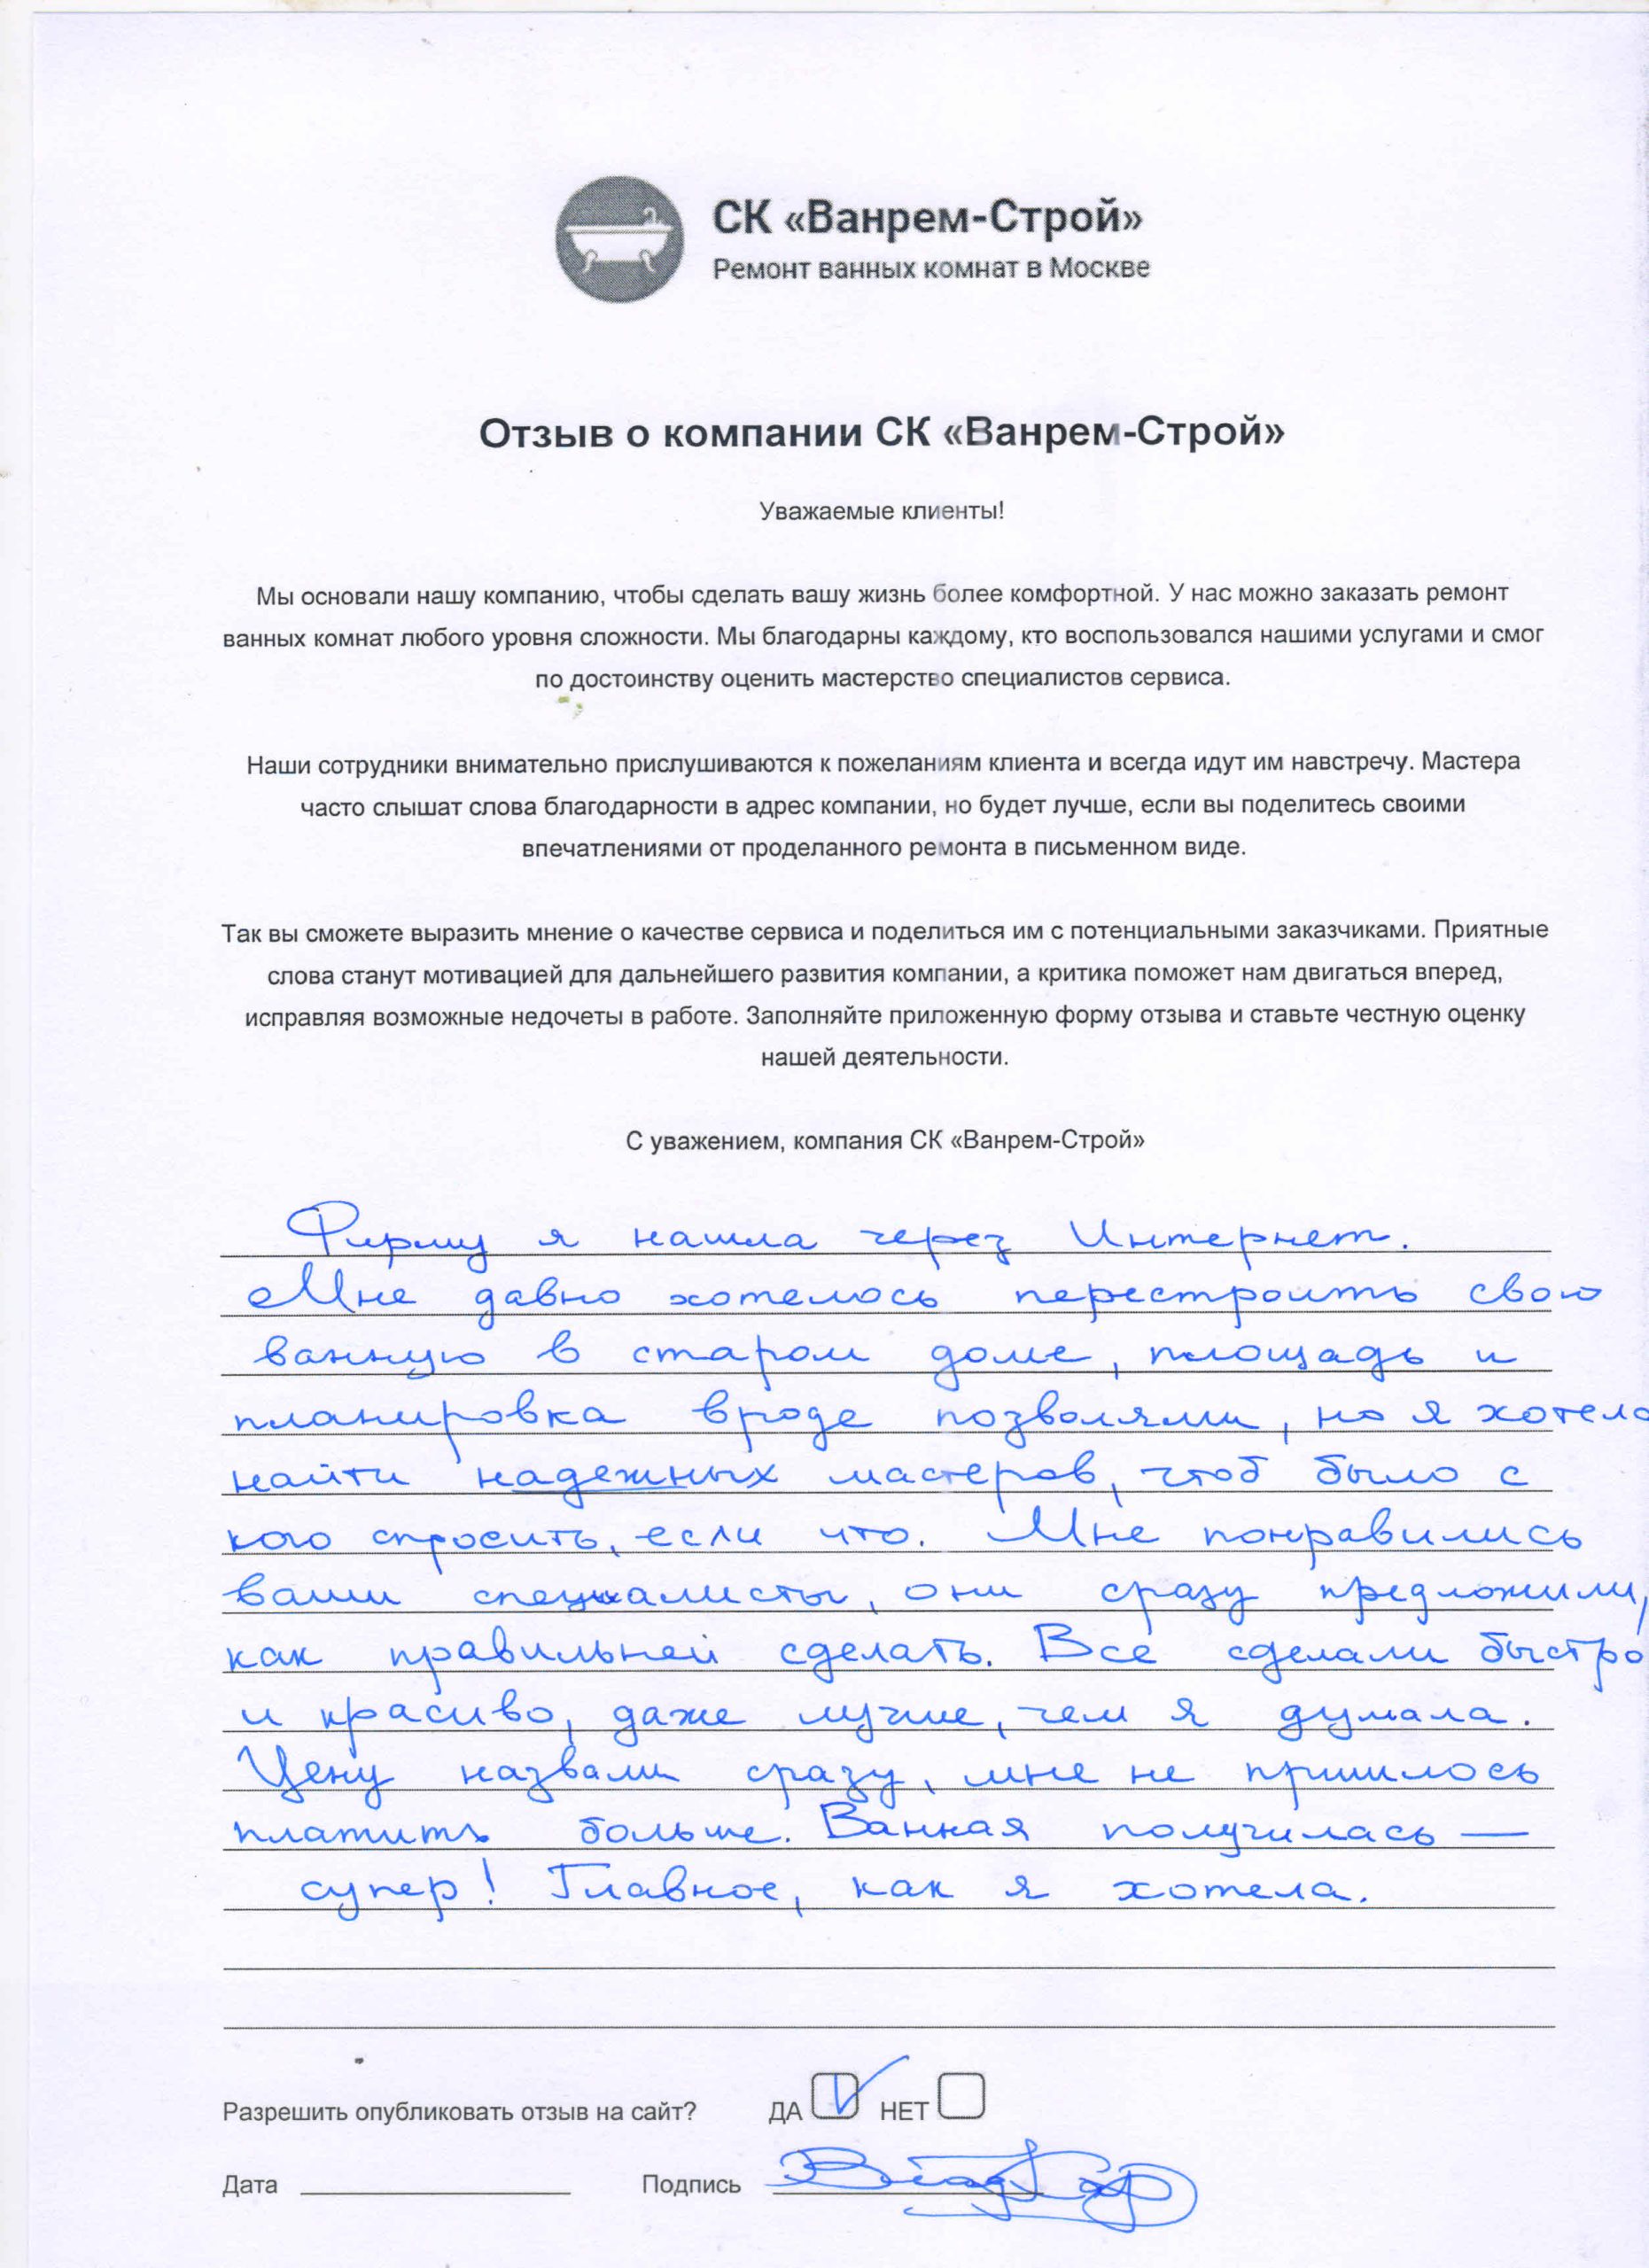 СК «Ванрем-Строй»
Ремонт ванных комнат в Москве
Отзыв о компании СК «Ванрем-Строй»
Уважаемые клиенты!
Мы основали нашу компанию, чтобы сделать вашу жизнь более комфортной. У нас можно заказать ремонт
ванных комнат любого уровня сложности. Мы благодарны каждому, кто воспользовался нашими услугами и смог
по достоинству оценить мастерство специалистов сервиса.
Наши сотрудники внимательно прислушиваются к пожеланиям клиента и всегда идут им навстречу. Мастера
часто слышат слова благодарности в адрес компании, но будет лучше, если вы поделитесь своими
впечатлениями от проделанного ремонта в письменном виде.
Так вы сможете выразить мнение о качестве сервиса и поделиться им с потенциальными заказчиками. Приятные
слова станут мотивацией для дальнейшего развития компании, а критика поможет нам двигаться вперед,
исправляя возможные недочеты в работе. Заполняйте приложенную форму отзыва и ставьте честную оценку
нашей деятельности.
С уважением, компания СК «Ванрем-Строй»
Фирму я нашла через Интернет.
Мне давно хотелось перестроить свою
ванную в старом доме, площадь и
планировка вроде позволяли, но я хотела
найти надежных мастеров, чтоб было с
кого спросить, если что. Мне понравились
ваши специалисты, они сразу предложили,
как правильней сделать. Все сделали быстро
и красиво, даже лучше, чем я думала.
Цену назвали сразу, мне не пришлось
платить больше. Ванная получилась —
супер! Главное, как я хотела.
Разрешить опубликовать отзыв на сайт? ДА НЕТ
Дата Подпись